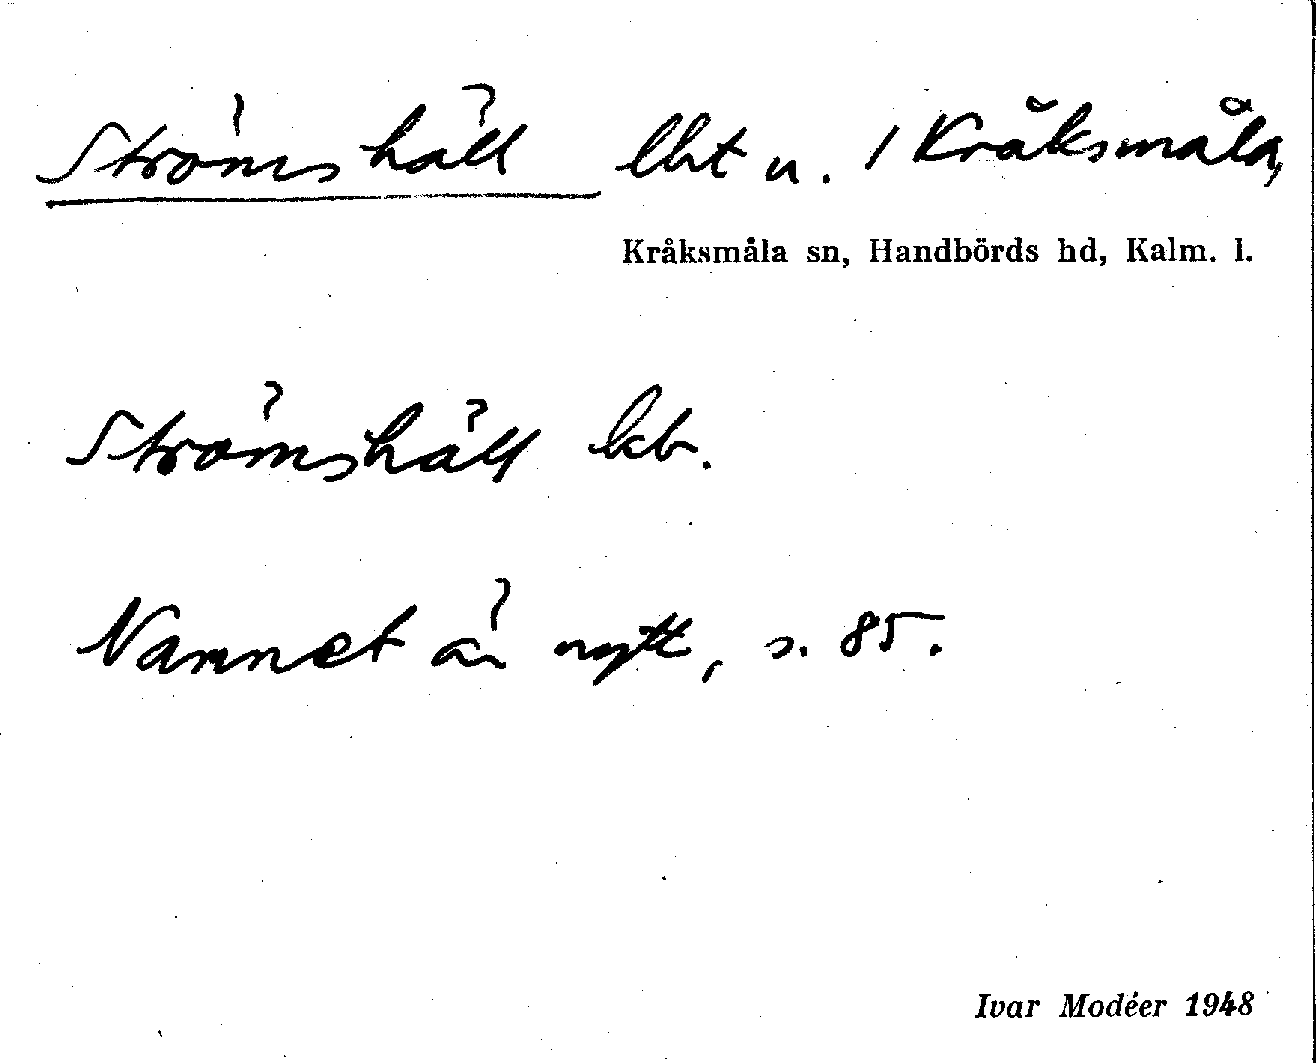 Strömshäll lht u. 1 Kråksmåla,
Kråksmåla sn, Handbörds hd, Kalm. l.
Strömshäll kb.
Namnet är nytt, s. 85.
Ivar Modéer 1948